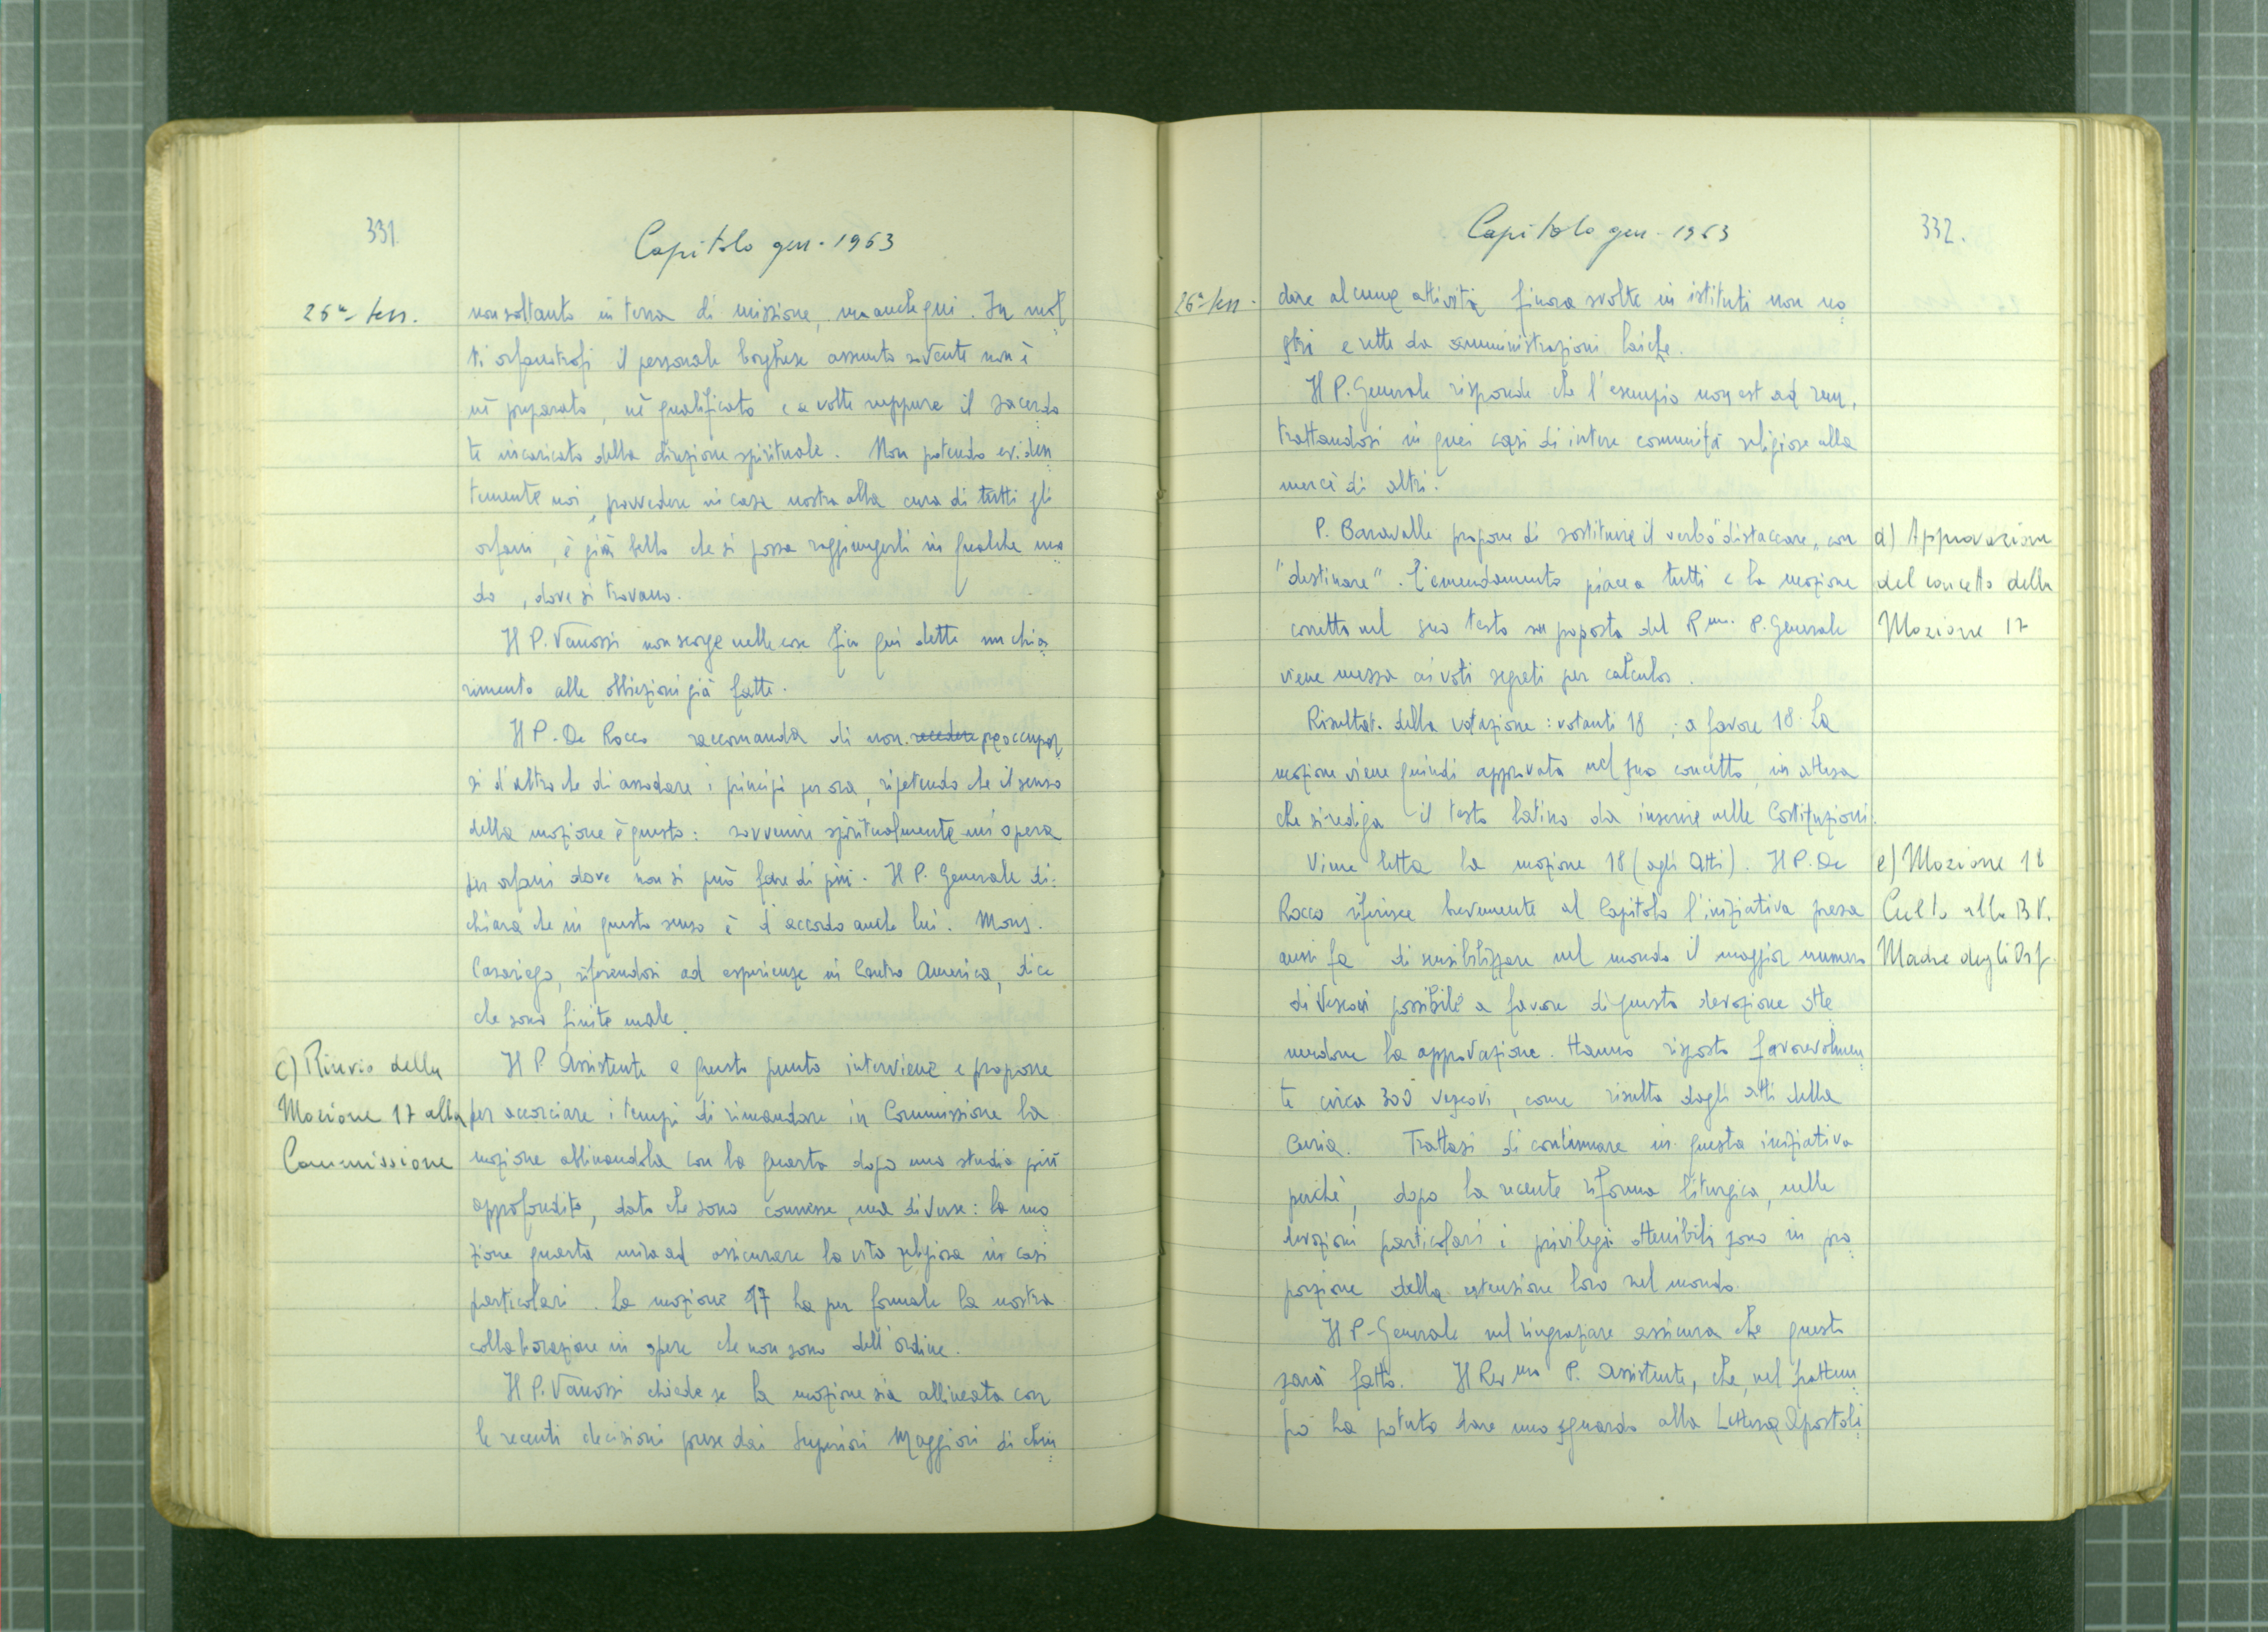 331.
Capitolo gen. 1963
26ª sess.
non soltanto in terra di missione, ma anche qui. In mol
ti orfanotrofi il personale borghese assunto sovente non è
nè preparato, nè qualificato e a volte neppure il sacerdo
te incaricato della direzione spirituale. Non potendo eviden
temente noi, provvedere in casa nostra alla cura di tutti gli
orfani, è già bello che si possa raggiungerli in qualche mo
do, dove si trovano.
Il P. Vanossi non scorge nelle cose fin qui dette un chia
rimento alle obbiezioni già fatte.
Il P. De Rocco raccomanda di non recedere preoccupar
si d'altro che di assodare i principi per ora, ripetendo che il senso
della mozione è questo: sovvenire spiritualmente un'opera
per orfani dove non si può fare di più. Il P. Generale di-
chiara che in questo senso è d'accordo anche lui. Mons.
Casariego, riferendosi ad esperienze in Centro America, dice
che sono finite male.
c) Rinvio della
Mozione 17 alla
Commissione
Il P. Assistente a questo punto interviene e propone
per accorciare i tempi di rimandare in Commissione la
mozione abbinandola con la quarta dopo uno studio più
approfondito, dato che sono connesse, ma diverse: la mo
zione quarta mira ad assicurare la vita religiosa in casi
particolari. La mozione 17 ha per formale la nostra
collaborazione in opere che non sono dell'Ordine.
Il P. Vanossi chiede se la mozione sia allineata con
le recenti decisioni prese dai Superiori Maggiori di chiu
Capitolo gen. 1963
332.
26ª sess.
dere alcune attività finora svolte in istituti non no
stri e rette da amministrazioni laiche.
Il P. Generale risponde che l'esempio non est ad rem,
trattandosi in quei casi di intere comunità religiose alla
mercè di altri.
P. Baravalle propone di sostituire il verbo "distaccare" con
"destinare". L'emendamento piace a tutti e la mozione
corretta nel suo testo su proposta del Rmo. P. Generale
viene messa ai voti segreti per calculos.
d) Approvazione
del concetto della
Mozione 17
Risultat. della votazione: votanti 18; a favore 18. La
mozione viene quindi approvata nel suo concetto, in attesa
che si rediga il testo latino da inserire nelle Costituzioni.
Viene letta la mozione 18 (agli Atti). Il P. De
Rocco riferisce brevemente al Capitolo l'iniziativa presa
anni fa di sensibilizzare nel mondo il maggior numero
di Vescovi possibile a favore di questa devozione otte
nendone la approvazione. Hanno risposto favorevolmen
te circa 300 vescovi, come risulta dagli atti della
Curia. Trattasi di continuare in questa iniziativa
perchè, dopo la recente riforma liturgica, nelle
devozioni particolari i privilegi ottenibili sono in pro
porzione della estensione loro nel mondo.
e) Mozione 18
Culto alla B.V.
Madre degli Orf.
Il P. Generale nel ringraziare assicura che questo
sarà fatto. Il Rev mo P. Assistente, che, nel frattem
po ha potuto dare uno sguardo alla Lettera Apostoli